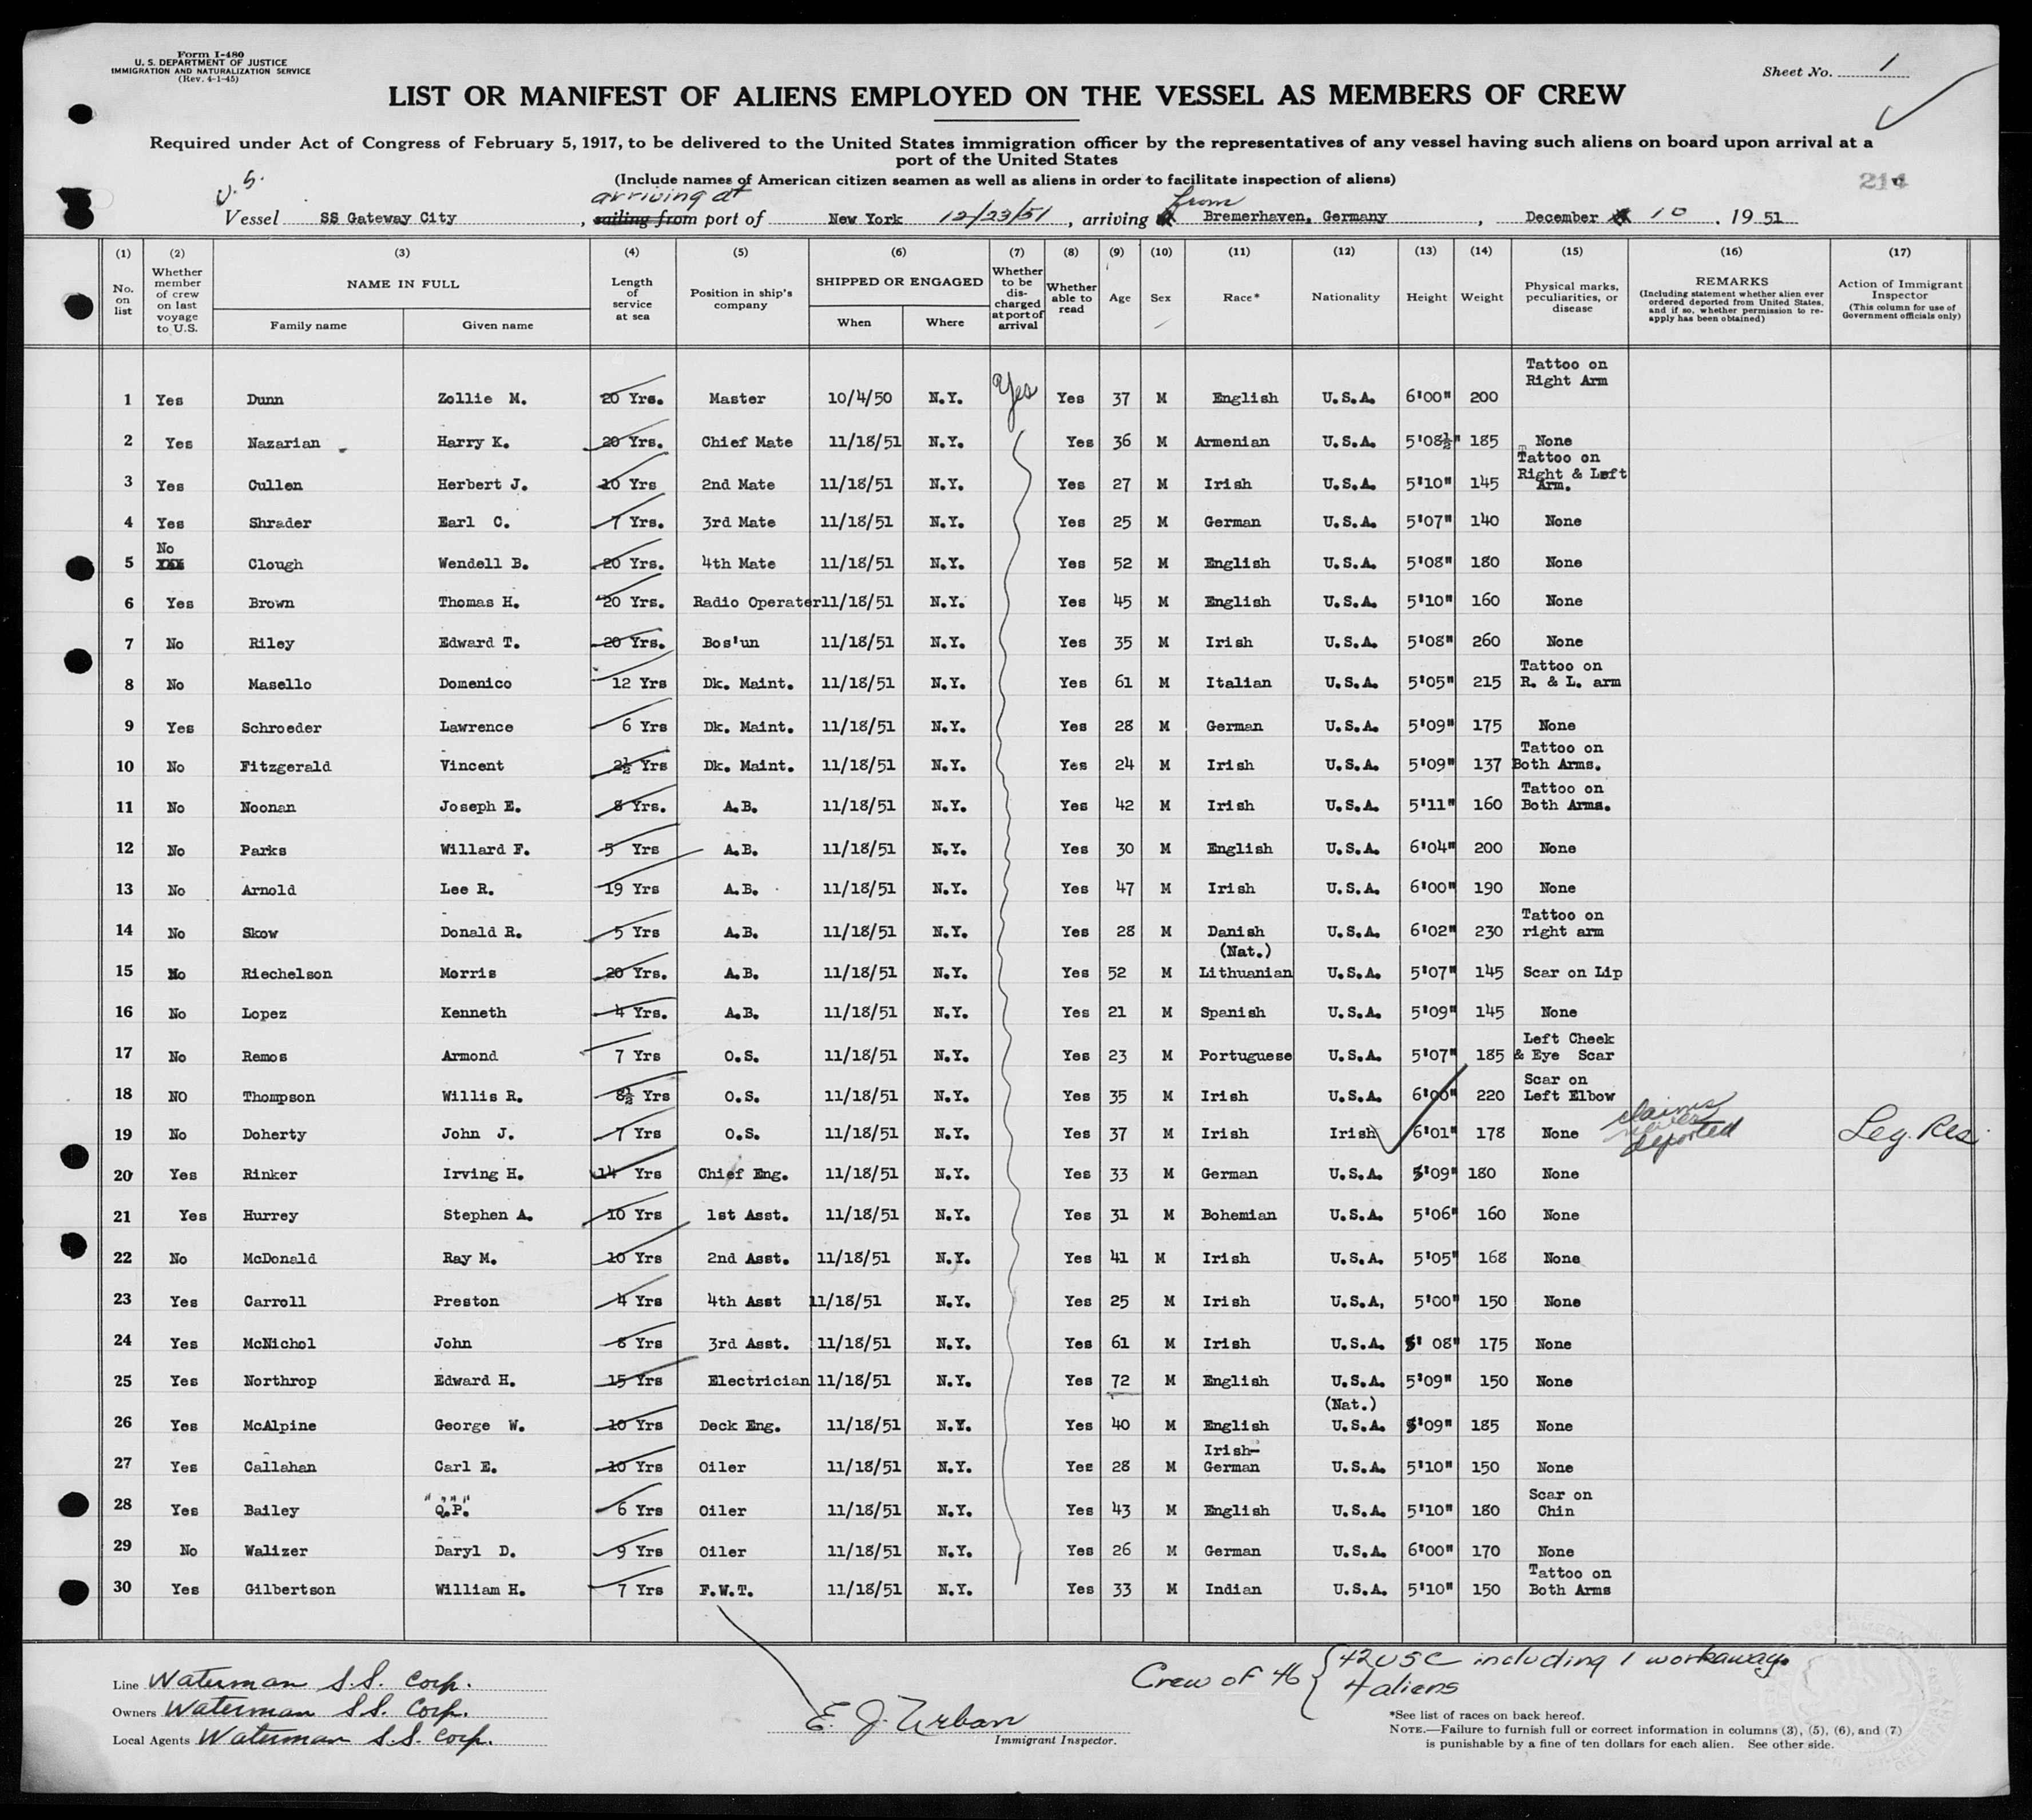 Form I-480
U. S. DEPARTMENT OF JUSTICE
IMMIGRATION AND NATURALIZATION SERVICE
(Rev. 4-1-45)
Sheet No. 1
LIST OR MANIFEST OF ALIENS EMPLOYED ON THE VESSEL AS MEMBERS OF CREW
Required under Act of Congress of February 5, 1917, to be delivered to the United States immigration officer by the representatives of any vessel having such aliens on board upon arrival at a
port of the United States
(Include names of American citizen seamen as well as aliens in order to facilitate inspection of aliens)
214
U.S. arriving at from
Vessel SS Gateway City, sailing from port of New York 12/23/51, arriving Bremerhaven, Germany, December 10, 1951
(1) (2) (3) (4) (5) (6) (7) (8) (9) (10) (11) (12) (13) (14) (15) (16) (17)
No. on list
Whether member of crew on last voyage to U.S.
NAME IN FULL
Family name Given name
Length of service at sea
Position in ship's company
SHIPPED OR ENGAGED
When Where
Whether to be discharged at port of arrival
Whether able to read
Age
Sex
Race*
Nationality
Height
Weight
Physical marks, peculiarities, or disease
REMARKS
(Including statement whether alien ever ordered deported from United States, and if so, whether permission to reapply has been obtained)
Action of Immigrant Inspector
(This column for use of Government officials only)
1 Yes Dunn Zollie M. 20 Yrs. Master 10/4/50 N.Y. Yes Yes 37 M English U.S.A. 6'00" 200 Tattoo on Right Arm
2 Yes Nazarian Harry K. 20 Yrs. Chief Mate 11/18/51 N.Y. Yes 36 M Armenian U.S.A. 5'08½" 185 None
3 Yes Cullen Herbert J. 10 Yrs 2nd Mate 11/18/51 N.Y. Yes 27 M Irish U.S.A. 5'10" 145 Tattoo on Right & Left Arm.
4 Yes Shrader Earl C. 7 Yrs. 3rd Mate 11/18/51 N.Y. Yes 25 M German U.S.A. 5'07" 140 None
5 No Clough Wendell B. 20 Yrs. 4th Mate 11/18/51 N.Y. Yes 52 M English U.S.A. 5'08" 180 None
6 Yes Brown Thomas H. 20 Yrs. Radio Operator 11/18/51 N.Y. Yes 45 M English U.S.A. 5'10" 160 None
7 No Riley Edward T. 20 Yrs. Bos'un 11/18/51 N.Y. Yes 35 M Irish U.S.A. 5'08" 260 None
8 No Masello Domenico 12 Yrs Dk. Maint. 11/18/51 N.Y. Yes 61 M Italian U.S.A. 5'05" 215 Tattoo on R. & L. arm
9 Yes Schroeder Lawrence 6 Yrs Dk. Maint. 11/18/51 N.Y. Yes 28 M German U.S.A. 5'09" 175 None
10 No Fitzgerald Vincent 2½ Yrs Dk. Maint. 11/18/51 N.Y. Yes 24 M Irish U.S.A. 5'09" 137 Tattoo on Both Arms.
11 No Noonan Joseph E. 8 Yrs. A.B. 11/18/51 N.Y. Yes 42 M Irish U.S.A. 5'11" 160 Tattoo on Both Arms.
12 No Parks Willard F. 5 Yrs A.B. 11/18/51 N.Y. Yes 30 M English U.S.A. 6'04" 200 None
13 No Arnold Lee R. 19 Yrs A.B. 11/18/51 N.Y. Yes 47 M Irish U.S.A. 6'00" 190 None
14 No Skow Donald R. 5 Yrs A.B. 11/18/51 N.Y. Yes 28 M Danish U.S.A. 6'02" 230 Tattoo on right arm
15 No Riechelson Morris 20 Yrs. A.B. 11/18/51 N.Y. Yes 52 M (Nat.) Lithuanian U.S.A. 5'07" 145 Scar on Lip
16 No Lopez Kenneth 4 Yrs. A.B. 11/18/51 N.Y. Yes 21 M Spanish U.S.A. 5'09" 145 None
17 No Remos Armond 7 Yrs O.S. 11/18/51 N.Y. Yes 23 M Portuguese U.S.A. 5'07" 185 Left Cheek & Eye Scar
18 NO Thompson Willis R. 8½ Yrs O.S. 11/18/51 N.Y. Yes 35 M Irish U.S.A. 6'00" 220 Scar on Left Elbow
19 No Doherty John J. 7 Yrs O.S. 11/18/51 N.Y. Yes 37 M Irish Irish 6'01" 178 None claims never deported Leg. Res.
20 Yes Rinker Irving H. 14 Yrs Chief Eng. 11/18/51 N.Y. Yes 33 M German U.S.A. 5'09" 180 None
21 Yes Hurrey Stephen A. 10 Yrs 1st Asst. 11/18/51 N.Y. Yes 31 M Bohemian U.S.A. 5'06" 160 None
22 No McDonald Ray M. 10 Yrs 2nd Asst. 11/18/51 N.Y. Yes 41 M Irish U.S.A. 5'05" 168 None
23 Yes Carroll Preston 4 Yrs 4th Asst 11/18/51 N.Y. Yes 25 M Irish U.S.A, 5'00" 150 None
24 Yes McNichol John 8 Yrs 3rd Asst. 11/18/51 N.Y. Yes 61 M Irish U.S.A. 5' 08" 175 None
25 Yes Northrop Edward H. 15 Yrs Electrician 11/18/51 N.Y. Yes 72 M English U.S.A. 5'09" 150 None
26 Yes McAlpine George W. 10 Yrs Deck Eng. 11/18/51 N.Y. Yes 40 M English (Nat.) U.S.A. 5'09" 185 None
27 Yes Callahan Carl E. 10 Yrs Oiler 11/18/51 N.Y. Yes 28 M Irish-German U.S.A. 5'10" 150 None
28 Yes Bailey "Q.P." 6 Yrs Oiler 11/18/51 N.Y. Yes 43 M English U.S.A. 5'10" 180 Scar on Chin
29 No Walizer Daryl D. 9 Yrs Oiler 11/18/51 N.Y. Yes 26 M German U.S.A. 6'00" 170 None
30 Yes Gilbertson William H. 7 Yrs F.W.T. 11/18/51 N.Y. Yes 33 M Indian U.S.A. 5'10" 150 Tattoo on Both Arms
Line Waterman S.S. Corp.
Owners Waterman S.S. Corp.
Local Agents Waterman S.S. Corp.
E. J. Urban
Immigrant Inspector.
Crew of 46 { 42 USC including 1 workaway.
4 aliens
*See list of races on back hereof.
NOTE.—Failure to furnish full or correct information in columns (3), (5), (6), and (7)
is punishable by a fine of ten dollars for each alien. See other side.